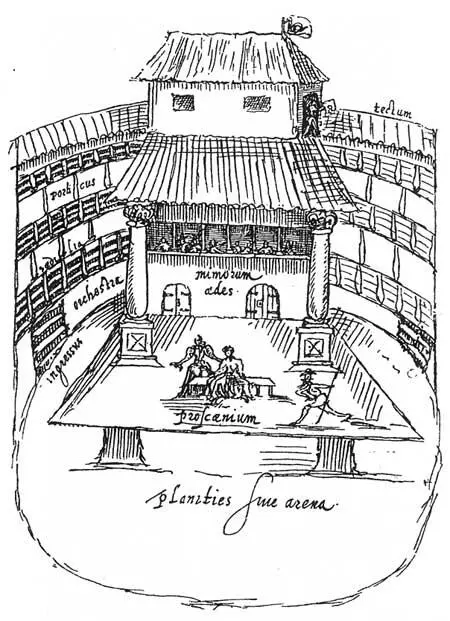 tectum
porticus
sedilia
orchestra
ingressus
mimorum
ædes.
proscænium
planities sive arena.